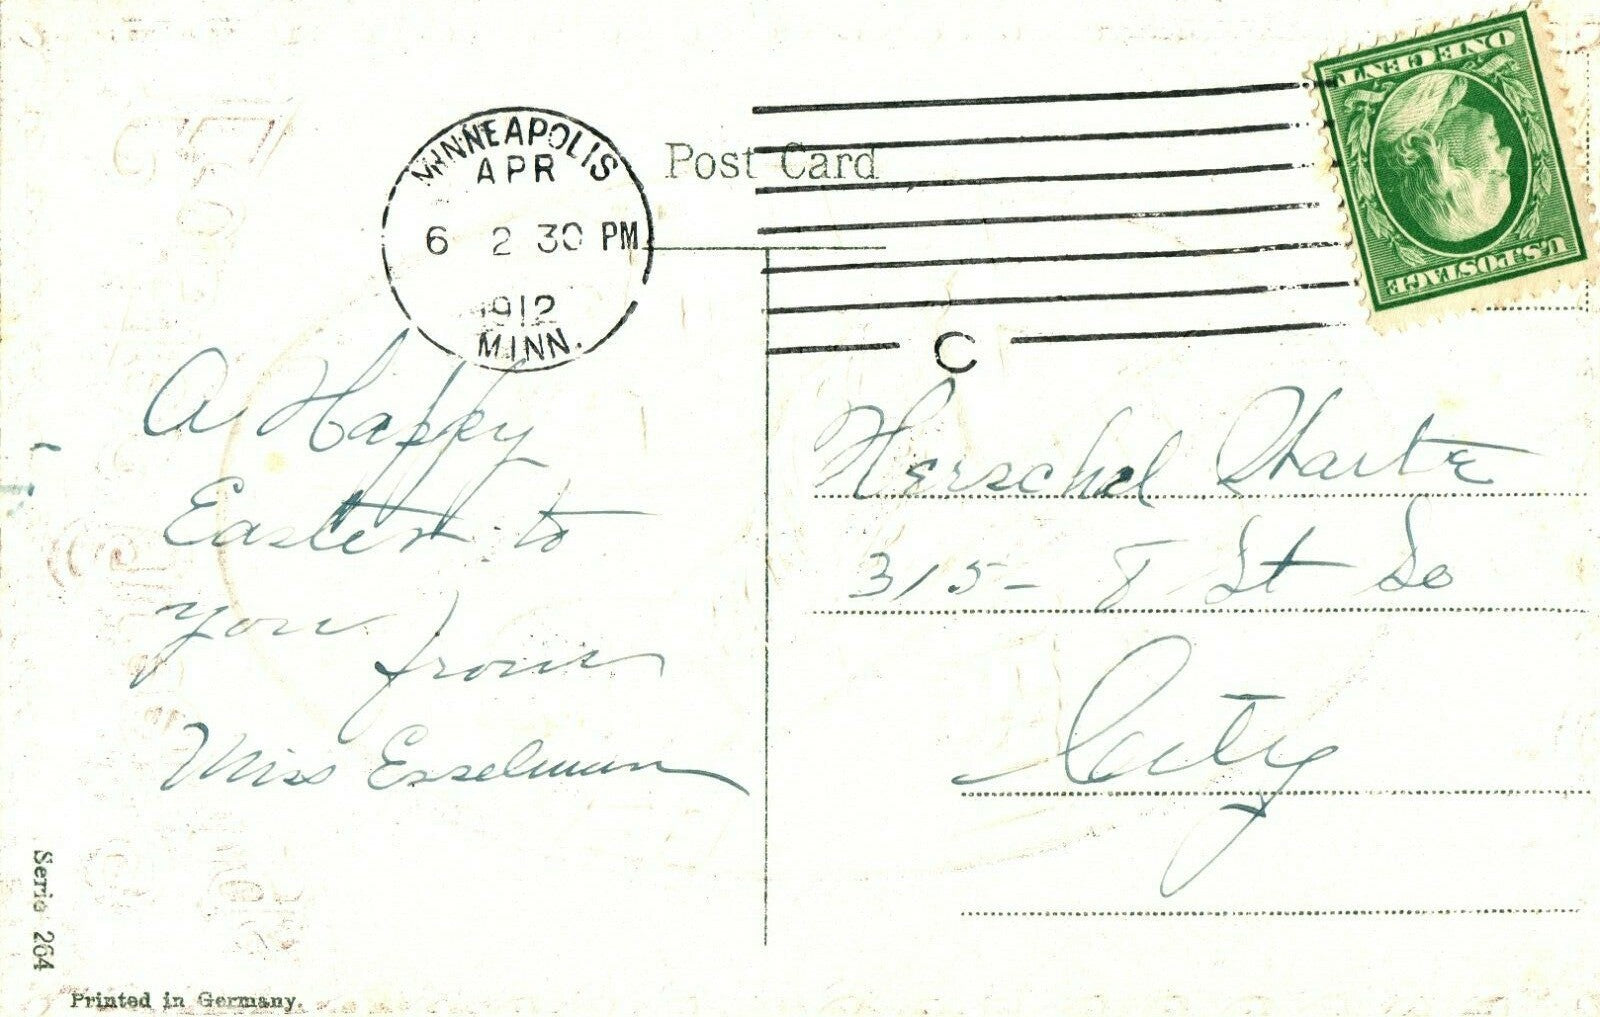 MINNEAPOLIS
APR
6 2 30 PM
1912
MINN.
Post Card
C
ONE CENT
U.S. POSTAGE
A Happy
Easter to
you from
Miss Esselman
Herschel
315- 8 St So
City
Serie 264
Printed in Germany.